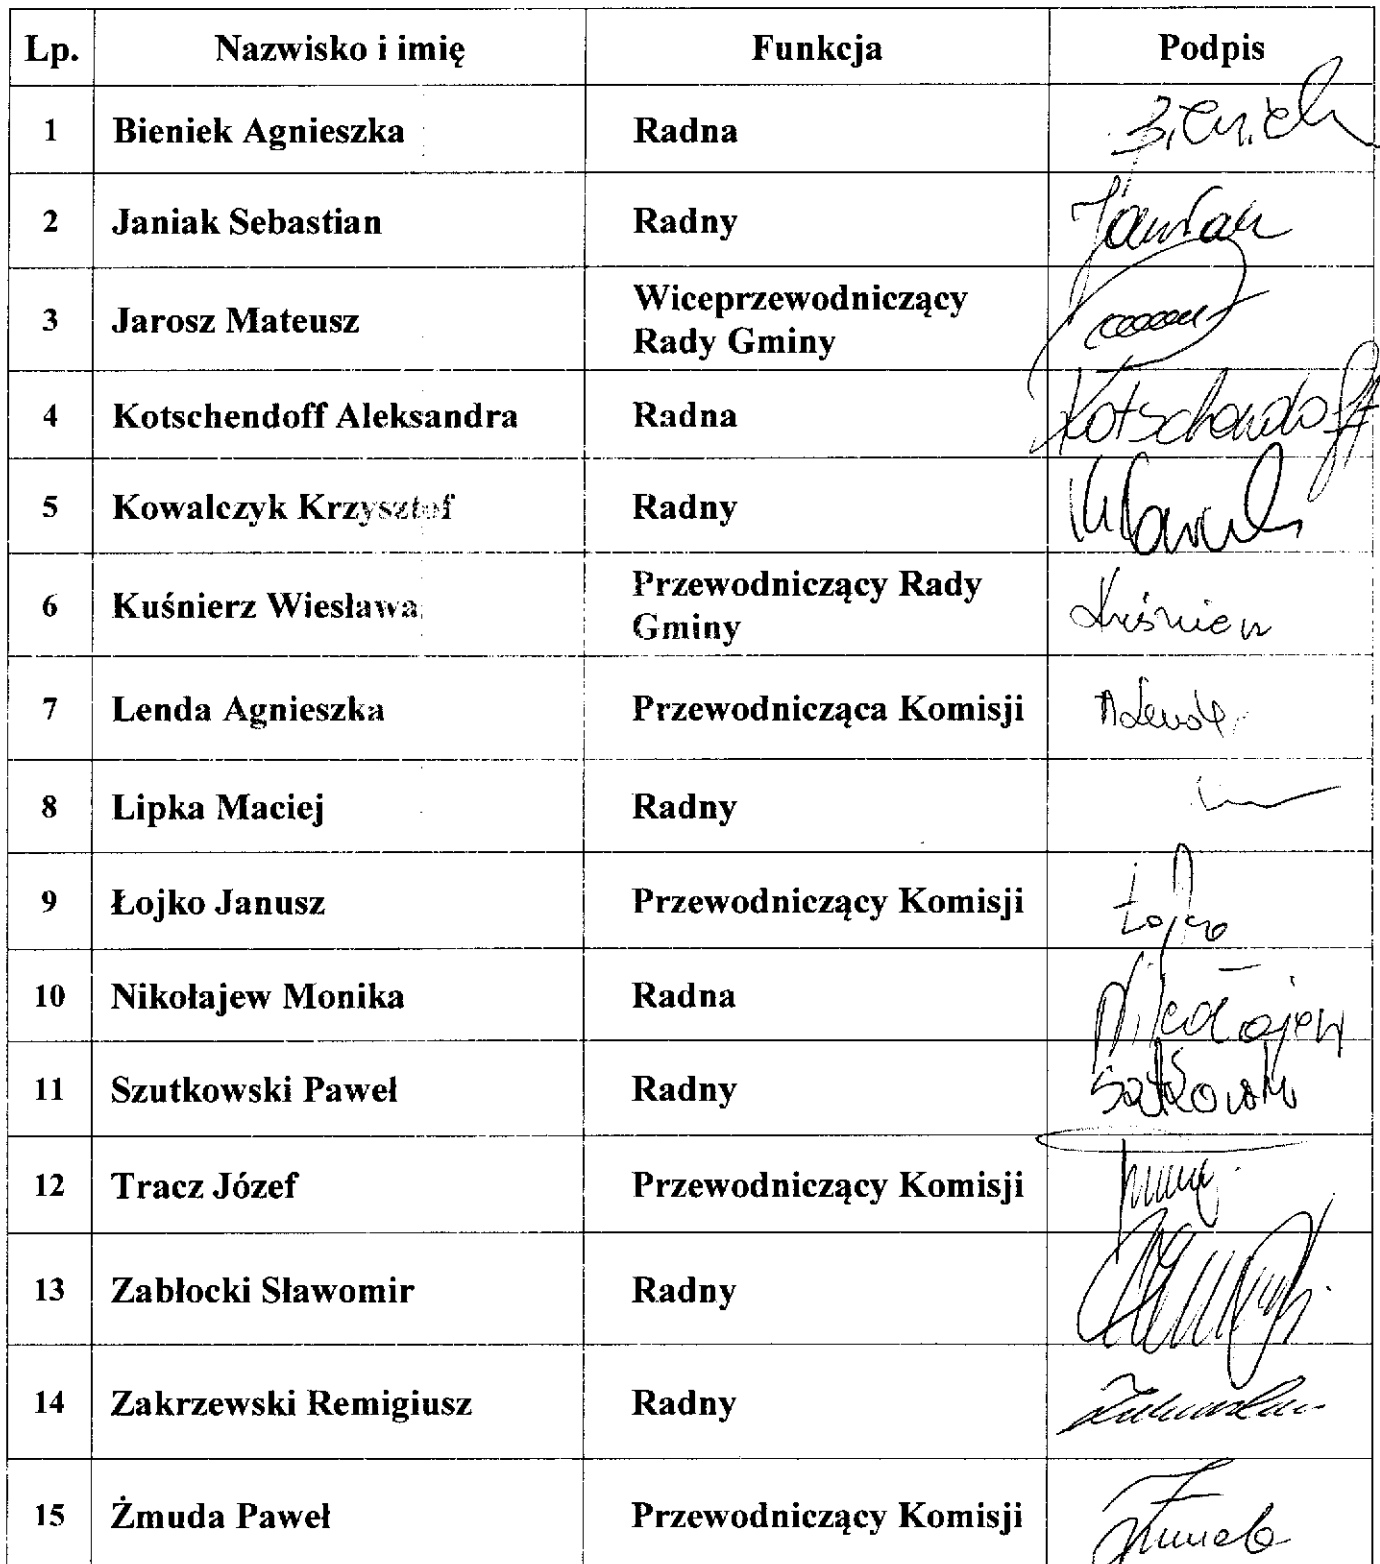 Lp. Nazwisko i imię Funkcja Podpis
1 Bieniek Agnieszka Radna
2 Janiak Sebastian Radny Janiak
3 Jarosz Mateusz Wiceprzewodniczący
Rady Gminy
4 Kotschendoff Aleksandra Radna Kotschendoff
5 Kowalczyk Krzysztof Radny
6 Kuśnierz Wiesława Przewodniczący Rady
Gminy
7 Lenda Agnieszka Przewodnicząca Komisji
8 Lipka Maciej Radny
9 Łojko Janusz Przewodniczący Komisji Łojko
10 Nikołajew Monika Radna Nikołajew
11 Szutkowski Paweł Radny
12 Tracz Józef Przewodniczący Komisji
13 Zabłocki Sławomir Radny
14 Zakrzewski Remigiusz Radny
15 Żmuda Paweł Przewodniczący Komisji Żmuda